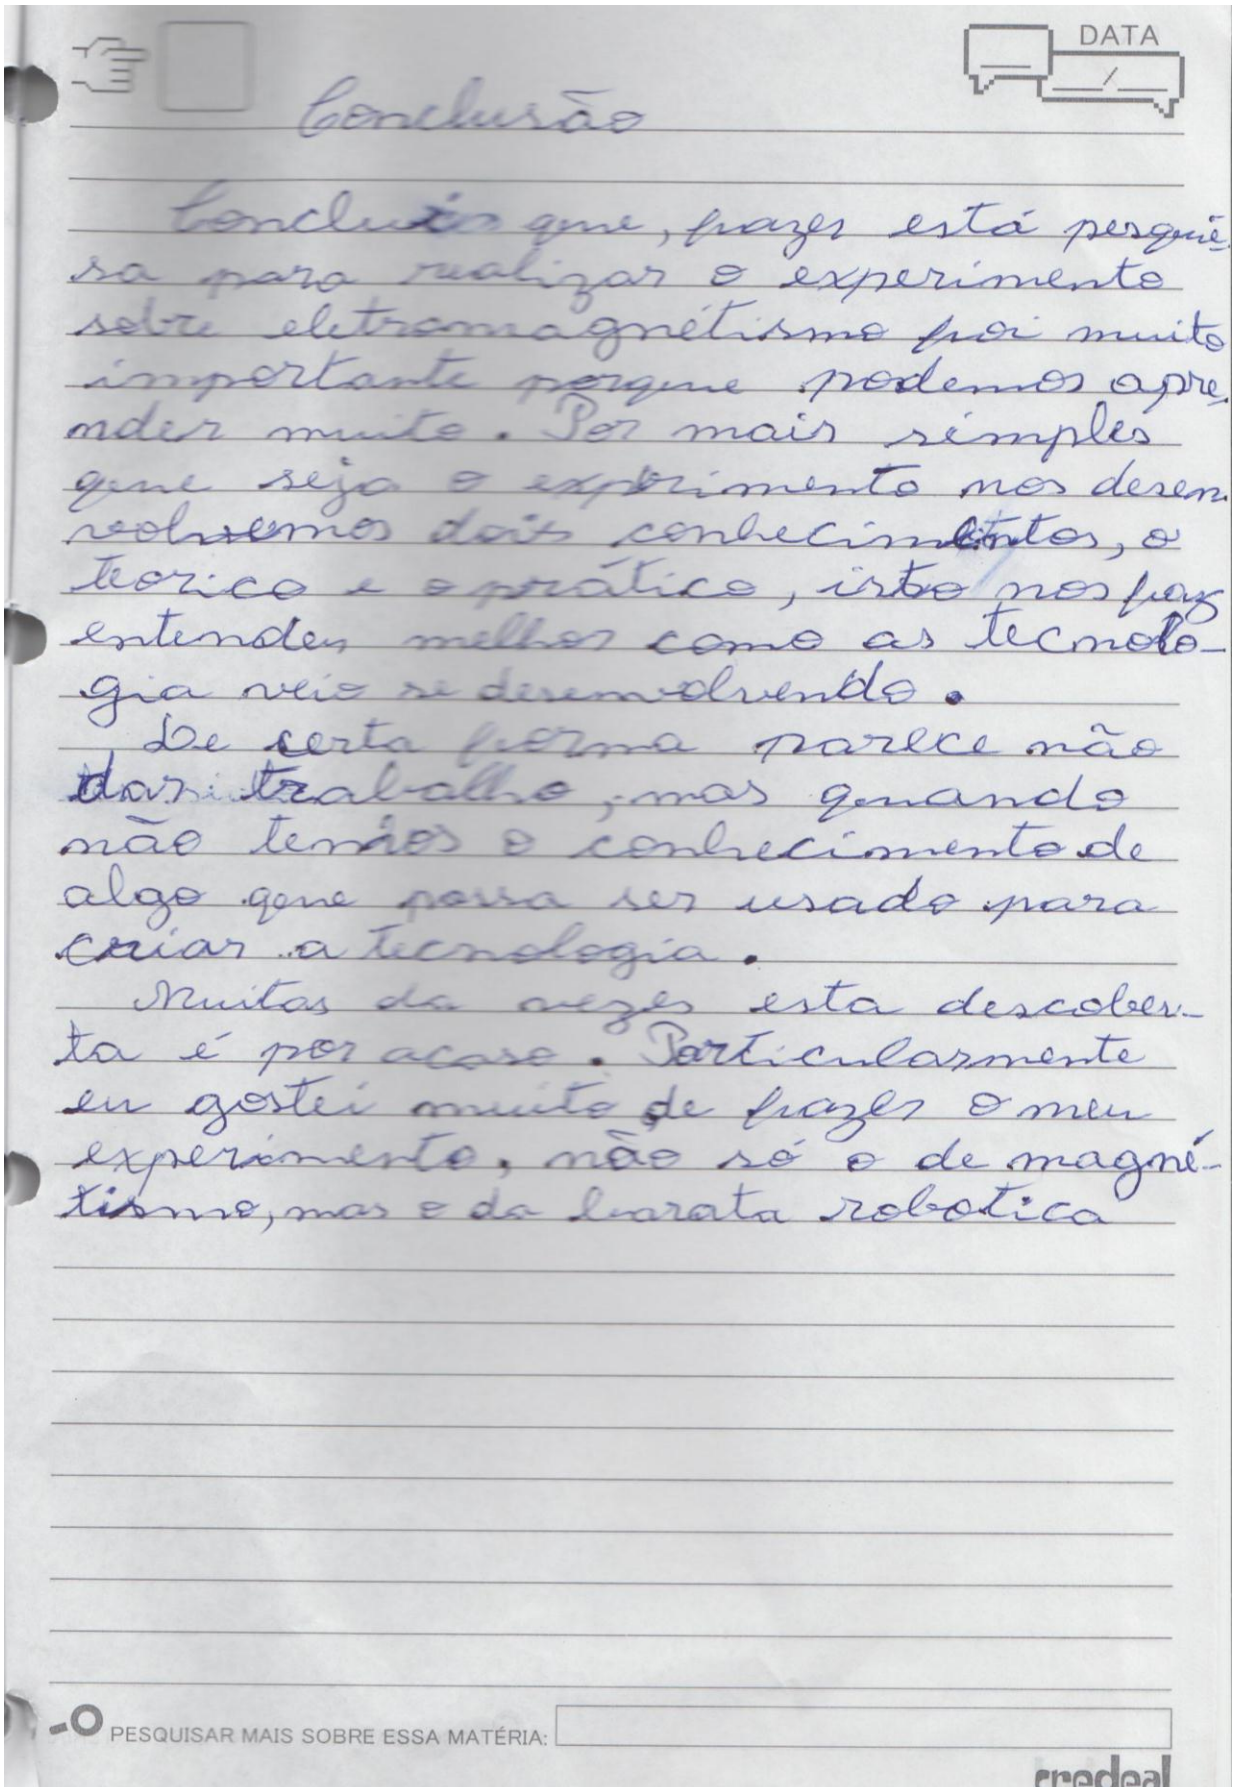 DATA
Conclusão
que, fazer está pesqui-
sa para realizar o experimento
sobre eletromagnétismo foi muito
importante porque podemos apre-
nder muito. Por mais simples
que seja o experimento nos desen-
volvemos dois conhecimentos, o
teorico e o prático, isto nos faz
entender melhor como as tecnolo-
gia veio se desenvolvendo.
De certa forma parece não
dar trabalho, mas quando
não temos o conhecimento de
algo que possa ser usado para
criar a tecnologia.
Muitas da vezes esta descober-
ta é por acaso. Particularmente
eu gostei muito de fazer o meu
experimento, não só o de magné-
tismo, mas o da barata robotica
PESQUISAR MAIS SOBRE ESSA MATÉRIA:
credeal